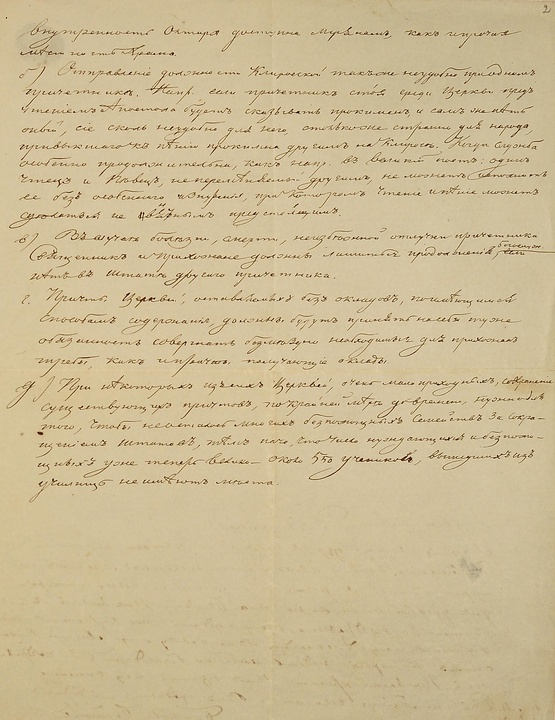 2
внутренность Олтаря доступна мірянамъ, какъ и прочія
мѣста Храма.
б) Отправленіе должности Клировой также неудобно при одномъ
причетникѣ. Напр. если причетникъ стоя среди Церкви предъ
чтеніемъ Апостола будетъ сказывать прокименъ и самъ же пѣть
оный, сіе сколь неудобно для него, столько же странно для народа
привыкшаго къ пѣнію прокимна другимъ на Клиросѣ. Когда Служба
особенно продолжительна, какъ напр. въ великій постъ: одинъ
чтецъ и Пѣвецъ, не перемѣняемый другимъ, не можетъ
ее безъ особеннаго при которомъ чтеніе и пѣніе можетъ
сдѣлаться не предстоящимъ.
в) Въ случаѣ болѣзни, смерти, неизбѣжной отлучки причетника
Священникъ и Прихожане должны лишиться Богослуж. если
нѣтъ въ штатѣ другаго причетника.
г. Причты Церквей, оставленныя безъ окладовъ, по
способамъ содержанія, должны будутъ принять на себя туже
обязанность совершать безмездно необходимыя для прихожанъ
требы, какъ и причты, получающіе оклады.
д) При нѣкоторыхъ Церквей, очень малоприходныхъ, сохраненіе
существующихъ причтовъ, по крайней мѣрѣ до времени, нужно для
того, чтобы не осталось многихъ безпомощныхъ Семействъ за сокра-
щеніемъ штатовъ, тѣмъ паче, что число нуждающихся и безпомо-
щныхъ уже теперь велико — около 550 учениковъ, вышедшихъ изъ
училищъ не имѣютъ мѣста.